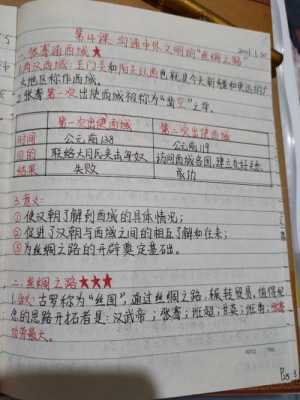 第14课 沟通中外文明的"丝绸之路"
一、张骞通西域★
1.西汉西域:玉门关和阳关以西也就是今天新疆和更远的广
大地区称作西域。
2.张骞第一次出使西域被称为"凿空"之举。
第一次出使西域 第二次出使西域
时间 公元前138 公元前119
目的 联络大月氏夹击匈奴 访问西域各国,建立友好
结果 失败 成功
3.意义:
①使汉朝了解到西域的具体情况;
②促进了汉朝与西域之间的相互了解和往来;
③为丝绸之路的开辟奠定基础。
二、丝绸之路★★★
1.含义:古罗称为"丝国",通过丝绸之路,辗转贸易,值得纪
念的思路开拓者是:汉武帝;张骞;班超;甘英;班勇;
功劳最大。
P65